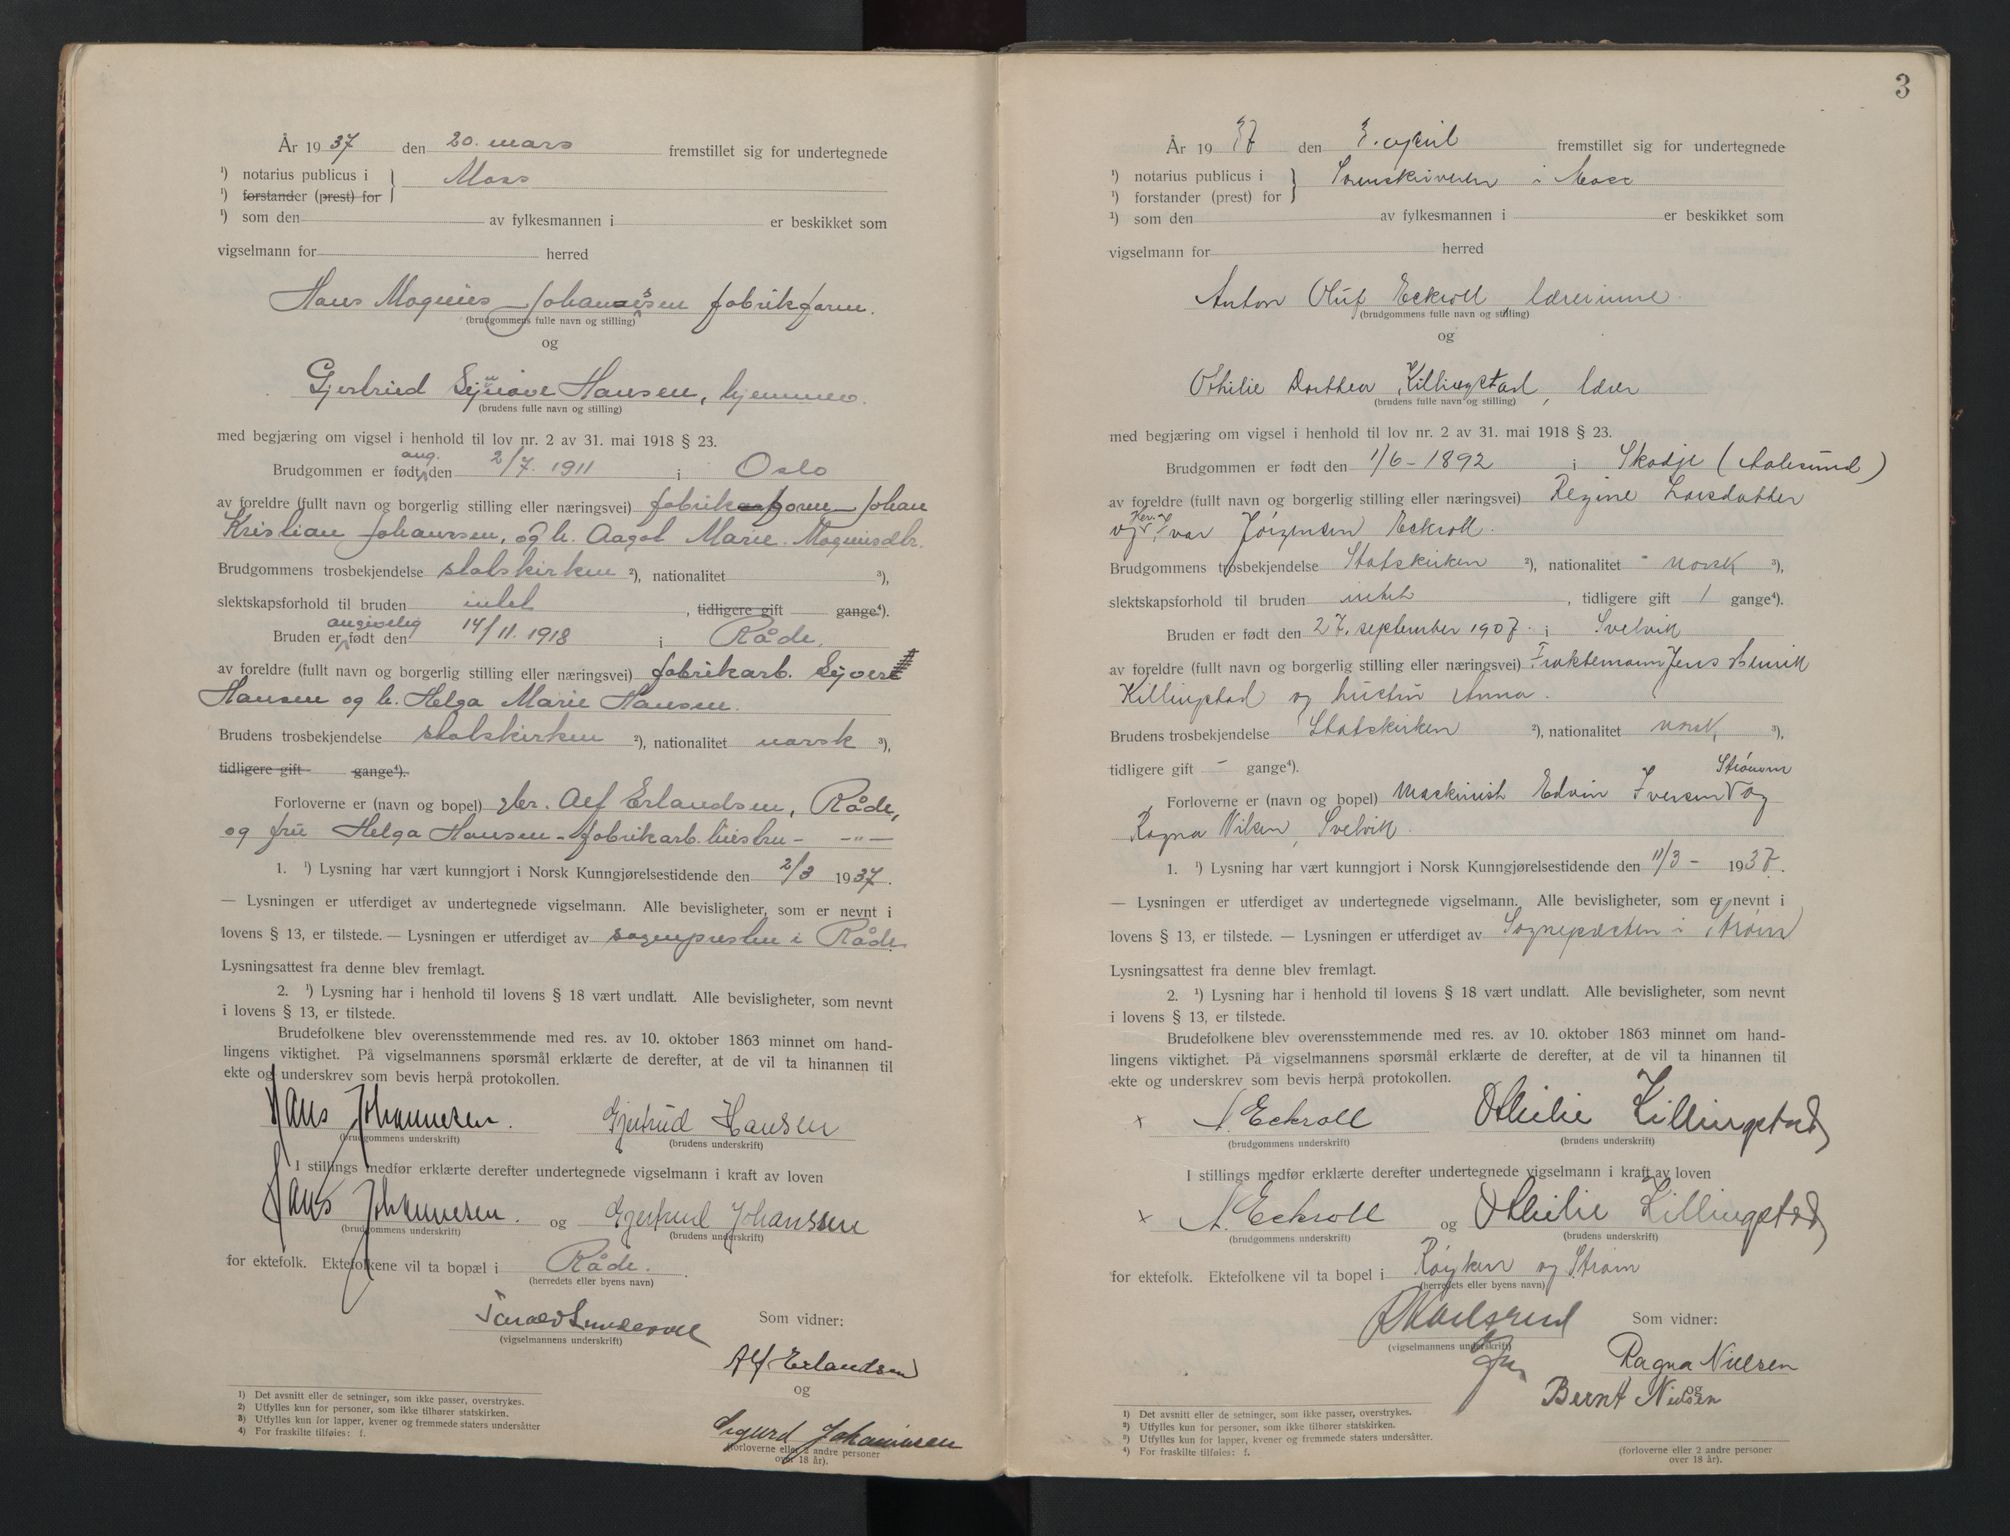 År 1937 den 20. mars fremstillet sig for undertegnede
¹) notarius publicus i } Moss
¹) forstander (prest) for
¹) som den av fylkesmannen i er beskikket som
vigselmann for herred
Hans Magnus Johanssen fabrikform.
(brudgommens fulle navn og stilling)
og
Gjertrud Synnøve Hansen, hjemmev.
(brudens fulle navn og stilling)
med begjæring om vigsel i henhold til lov nr. 2 av 31. mai 1918 § 23.
ang.
Brudgommen er født den 2/7. 1911 i Oslo
av foreldre (fullt navn og borgerlig stilling eller næringsvei) fabrikform Johan
Kristian Johanssen, og h. Aagot Marie Magnusdtr.
Brudgommens trosbekjendelse statskirken ²), nationalitet ³),
slektskapsforhold til bruden intet , tidligere gift gange⁴).
angivelig
Bruden er født den 14/11. 1918 i Råde.
av foreldre (fullt navn og borgerlig stilling eller næringsvei) fabrikarb. Syver
Hansen og h. Helga Marie Hansen.
Brudens trosbekjendelse statskirken ²), nationalitet norsk ³),
tidligere gift gange⁴).
Forloverne er (navn og bopel) gbr. Alf Erlandsen, Råde,
og fru Helga Hansen - fabrikarb. hustru - -„-
1. ¹) Lysning har vært kunngjort i Norsk Kunngjørelsestidende den 2/3 1937.
— Lysningen er utferdiget av undertegnede vigselmann. Alle bevisligheter, som er nevnt i
lovens § 13, er tilstede. — Lysningen er utferdiget av sognepresten i Råde
Lysningsattest fra denne blev fremlagt.
2. ¹) Lysning har i henhold til lovens § 18 vært undlatt. Alle bevisligheter, som nevnt
i lovens § 13, er tilstede.
Brudefolkene blev overensstemmende med res. av 10. oktober 1863 minnet om hand-
lingens viktighet. På vigselmannens spørsmål erklærte de derefter, at de vil ta hinannen til
ekte og underskrev som bevis herpå protokollen.
Hans Johannesen. Gjertrud Hansen
(brudgommens underskrift) (brudens underskrift)
I stillings medfør erklærte derefter undertegnede vigselmann i kraft av loven
Hans Johannesen. og Gjertrud Johanssen
(brudgommens underskrift) (brudens underskrift)
for ektefolk. Ektefolkene vil ta bopæl i Råde.
(herredets eller byens navn)
(vigselmannens underskrift)
Som vidner:
Alf Erlandsen
og
Sigurd Johannesen
(forloverne eller 2 andre personer
over 18 år).
1) Det avsnitt eller de setninger, som ikke passer, overstrykes.
2) Utfylles kun for personer, som ikke tilhører statskirken.
3) Utfylles kun for lapper, kvener og fremmede staters undersåtter
4) For fraskilte tilføies: f.
3
År 1937 den 3. april fremstillet sig for undertegnede
¹) notarius publicus i } Sorenskriveren i Moss
¹) forstander (prest) for
¹) som den av fylkesmannen i er beskikket som
vigselmann for herred
Anton Oluf Eckroll lærerinne.
(brudgommens fulle navn og stilling)
og
Othilie Dorthea Killingstad, lærer
(brudens fulle navn og stilling)
med begjæring om vigsel i henhold til lov nr. 2 av 31. mai 1918 § 23.
Brudgommen er født den 1/6 - 1892 i Skodje (Aalesund)
av foreldre (fullt navn og borgerlig stilling eller næringsvei) Regine Larsdatter
og Ivar Jörgensen Eckroll.
Brudgommens trosbekjendelse Statskirken ²), nationalitet norsk ³),
slektskapsforhold til bruden intet , tidligere gift 1 gange⁴).
Bruden er født den 27. september 1907. i Svelvik
av foreldre (fullt navn og borgerlig stilling eller næringsvei) Fraktemann Jens Henrik
Killingstad og hustru Anna.
Brudens trosbekjendelse Statskirken ²), nationalitet norsk, ³),
tidligere gift - gange⁴).
Strömm
Forloverne er (navn og bopel) maskinist Edvin Iversen og
Ragna Nilsen, Svelvik.
1. ¹) Lysning har vært kunngjort i Norsk Kunngjørelsestidende den 11/3 - 1937.
— Lysningen er utferdiget av undertegnede vigselmann. Alle bevisligheter, som er nevnt i
lovens § 13, er tilstede. — Lysningen er utferdiget av Sognepresten i Strøm
Lysningsattest fra denne blev fremlagt.
2. ¹) Lysning har i henhold til lovens § 18 vært undlatt. Alle bevisligheter, som nevnt
i lovens § 13, er tilstede.
Brudefolkene blev overensstemmende med res. av 10. oktober 1863 minnet om hand-
lingens viktighet. På vigselmannens spørsmål erklærte de derefter, at de vil ta hinannen til
ekte og underskrev som bevis herpå protokollen.
x A. Eckroll Othilie Killingstad
(brudgommens underskrift) (brudens underskrift)
I stillings medfør erklærte derefter undertegnede vigselmann i kraft av loven
x A. Eckroll og Othilie Killingstad
(brudgommens underskrift) (brudens underskrift)
for ektefolk. Ektefolkene vil ta bopel i Röyken og Strøm
(herredets eller byens navn)
(vigselmannens underskrift)
Som vidner:
Ragna Nielsen
og
Bernt Nielsen
(forloverne eller 2 andre personer
over 18 år).
1) Det avsnitt eller de setninger, som ikke passer, overstrykes.
2) Utfylles kun for personer, som ikke tilhører statskirken.
3) Utfylles kun for lapper, kvener og fremmede staters undersåtter.
4) For fraskilte tilføies: f.